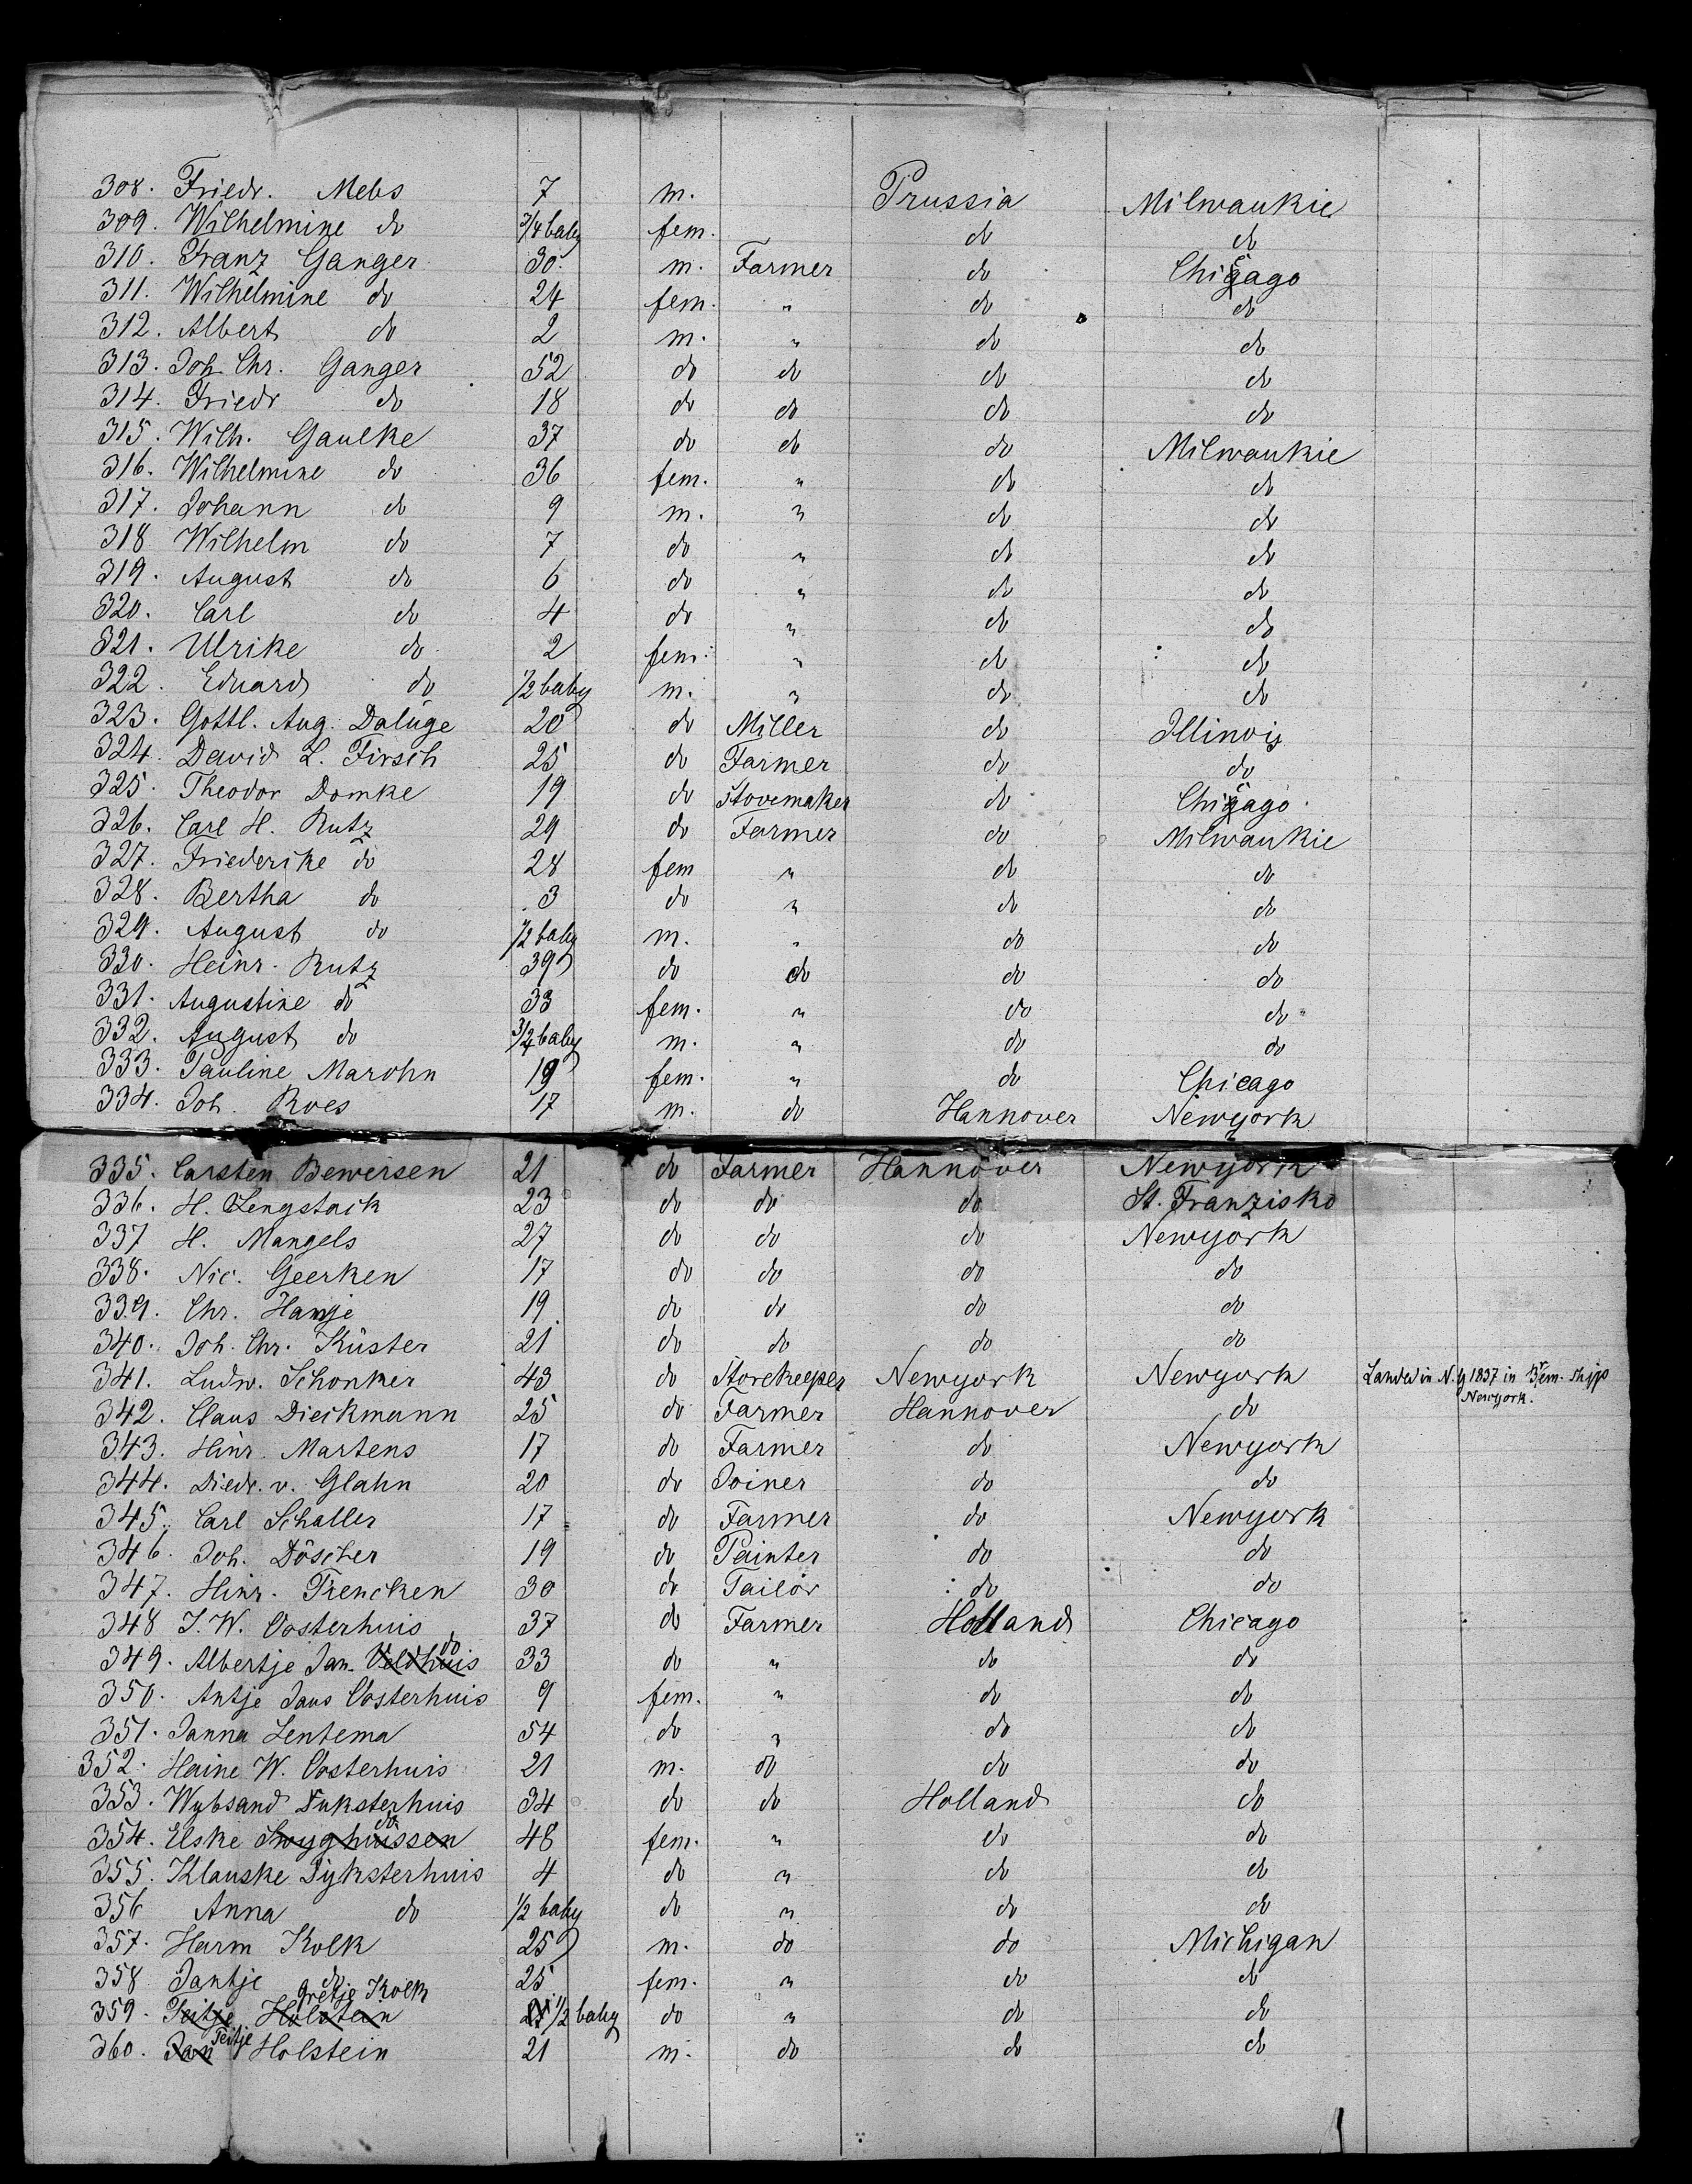 308. Friedr. Mebs 7 m. Prussia Milwaukie
309. Wilhelmine do 3/4 baby fem. do do
310. Franz Ganger 30. m. Farmer do Chicago
311. Wilhelmine do 24 fem. " do do
312. Albert do 2 m. " do do
313. Joh. Chr. Ganger 52 do do do do
314. Friedr do 18 do do do do
315. Wilh. Gaulke 37 do do do Milwaukie
316. Wilhelmine do 36 fem. " do do
317. Johann do 9 m. " do do
318 Wilhelm do 7 do " do do
319. August do 6 do " do do
320. Carl do 4 do " do do
321. Ulrike do 2 fem. " do do
322. Eduard do 1/2 baby m. " do do
323. Gottl. Aug. Daluge 20 do Miller do Illinois
324. David L. Firsch 25 do Farmer do do
325. Theodor Domke 19 do Stovemaker do Chicago
326. Carl H. Rutz 29 do Farmer do Milwaukie
327. Friederike do 28 fem " do do
328. Bertha do 3 do " do do
329. August do 1/2 baby m. " do do
330. Heinr. Rutz 39 do do do do
331. Augustine do 33 fem. " do do
332. August do 3/4 baby m. " do do
333. Pauline Marohn 19 fem. " do Chicago
334. Joh. Roes 17 m. do Hannover Newyork
335. Carsten Bewersen 21 do Farmer Hannover Newyork
336. H. Lengstack 23 do do do St. Franzisko
337 H. Mangels 27 do do do Newyork
338. Nic. Geerken 17 do do do do
339. Chr. Hamje 19 do do do do
340. Joh. Chr. Küster 21 do do do do
341. Ludw. Schonker 43 do Storekeeper Newyork Newyork Landed in N.Y 1837 in Brem. Ship
Newyork.
342. Claus Dieckmann 25 do Farmer Hannover do
343. Hinr. Martens 17 do Farmer do Newyork
344. Diedr. v. Glahn 20 do Joiner do do
345. Carl Schaller 17 do Farmer do Newyork
346. Joh. Döscher 19 do Painter do do
347. Hinr. Trencken 30 do Tailor do do
348 J. W. Oosterhuis 37 do Farmer Holland Chicago
349. Albertje Jan. Veldhuis do 33 do " do do
350. Antje Jans Oosterhuis 9 fem. " do do
351. Janna Lentema 54 do " do do
352. Haine W. Oosterhuis 21 m. do do do
353. Wybsand Dyksterhuis 34 do do Holland do
354. Elske Swyghuissen do 48 fem. " do do
355. Klauske Dyksterhuis 4 do " do do
356 Anna do 1/2 baby do " do do
357. Harm Kolk 25 m. do do Michigan
358 Jantje do 25 fem. " do do
359. Teitje Holstein Gretje Kolk 1/2 baby do " do do
360. Jan Teitje Holstein 21 m. do do do